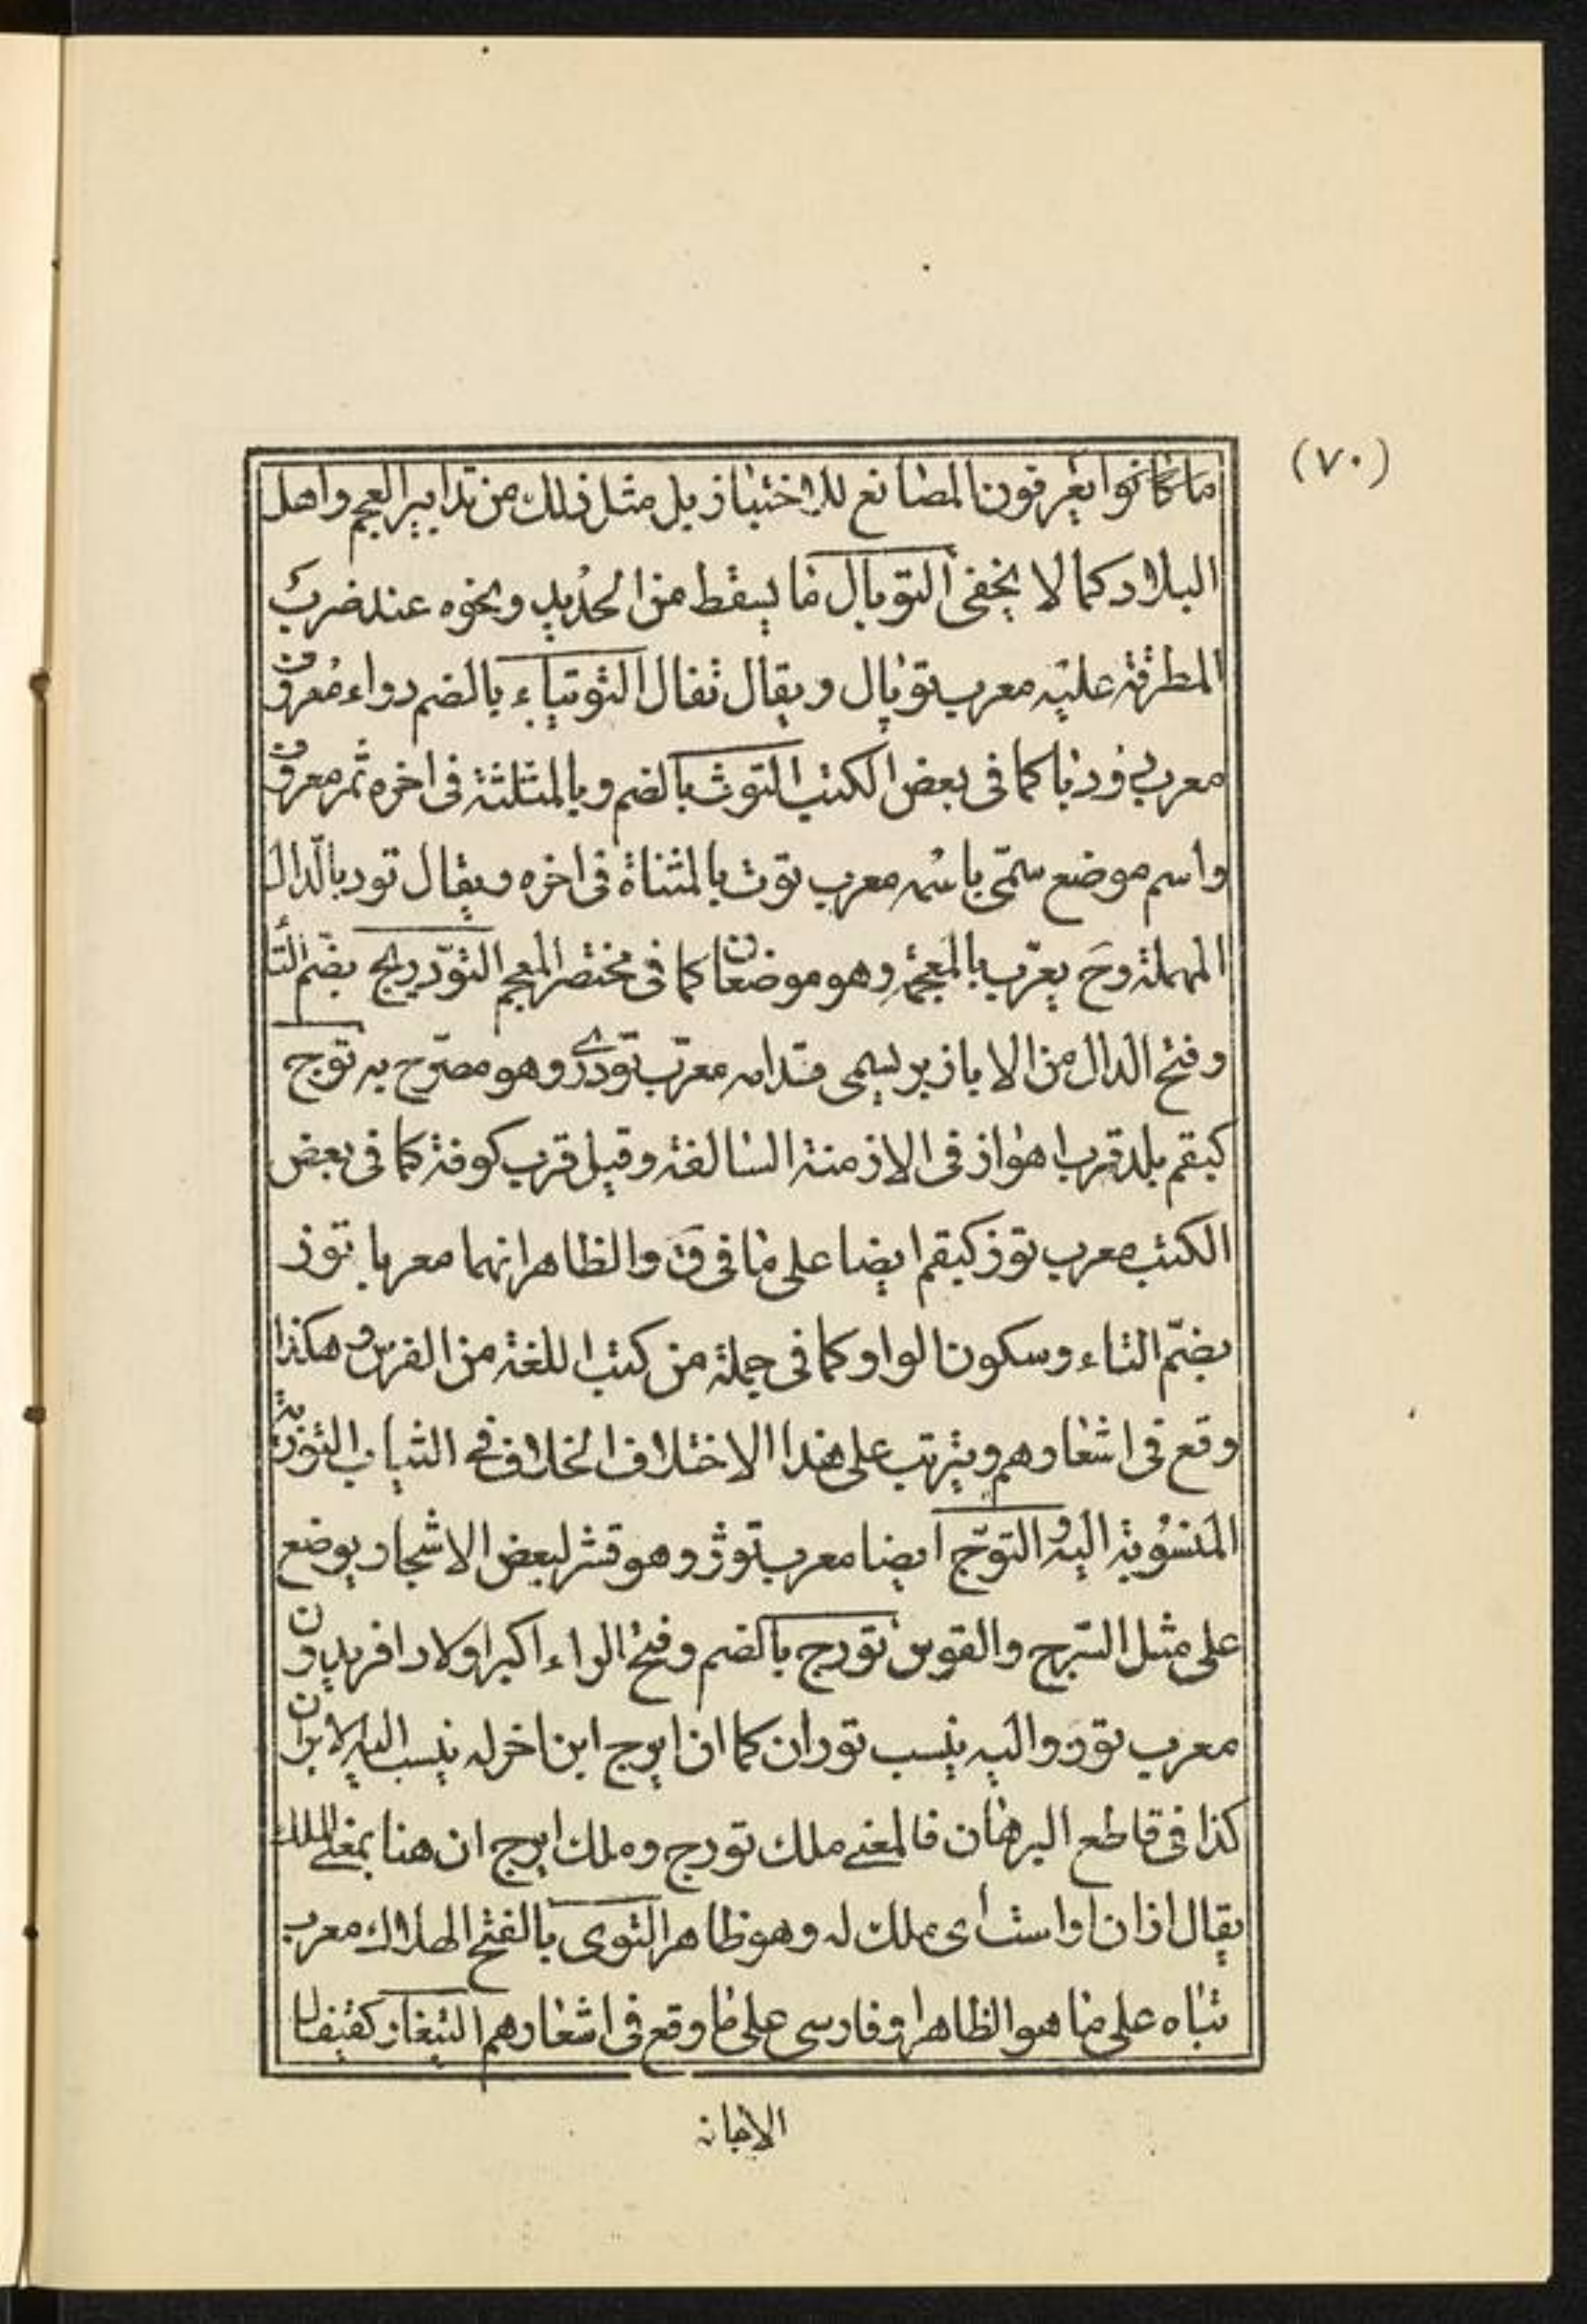 (٧٠)
ما كانوا يعرفون المصانع للاختباز بل مثل ذلك من تدابير العجم واهل
البلاد كما لا يخفى التوبال ما يسقط من الحديد ونحوه عند ضرب
المطرقة عليه معرب توپال ويقال تفال التوتياء بالضم دواء معروف
معرب كما فى بعض الكتب التوث بالضم وبالمثلثة فى اخره ثمر معروف
واسم موضع سمّى باسمه معرب توت بالمثناة فى اخره ويقال تود بالدال
المهملة وحَ يعرّب بالمعجمة وهو موضعان كما فى مختصر المعجم التوّدريج بضم التا
وفتح الدال من الابازير يسمى قدامه معرّب تودرى وهو مصرّح به توّج
كبقم بلد قرب اهواز فى الازمنة السالفة وقيل قرب كوفة كما فى بعض
الكتب معرب توز كبقم ايضا على ما فى قَ والظاهر انهما معربا توز
بضمّ التاء وسكون الواو كما فى جملة من كتب اللغة من الفرس وهكذا
وقع فى اشعارهم ويترتب على هذا الاختلاف الخلاف فى الثياب التوزية
المنسوبة اليه والتوّج ايضا معرب توژ وهو قشر لبعض الاشجار يوضع
على مثل السّرج والقوس تورج بالضم وفتح الراء اكبر اولاد افريدون
معرب تور واليه ينسب توران كما ان ايرج ابن اخر له ينسب اليه الايران
كذا فى قاطع البرهان فالمعنى ملك تورج وملك ايرج ان هنا بمعنى الملك
يقال اذان او است اى ملك له وهو ظاهر التوى بالفتح الهلاك معرب
تباه على ما هو الظاهر او فارسى على ما وقع فى اشعارهم التيغار كقيفال
الاجانه